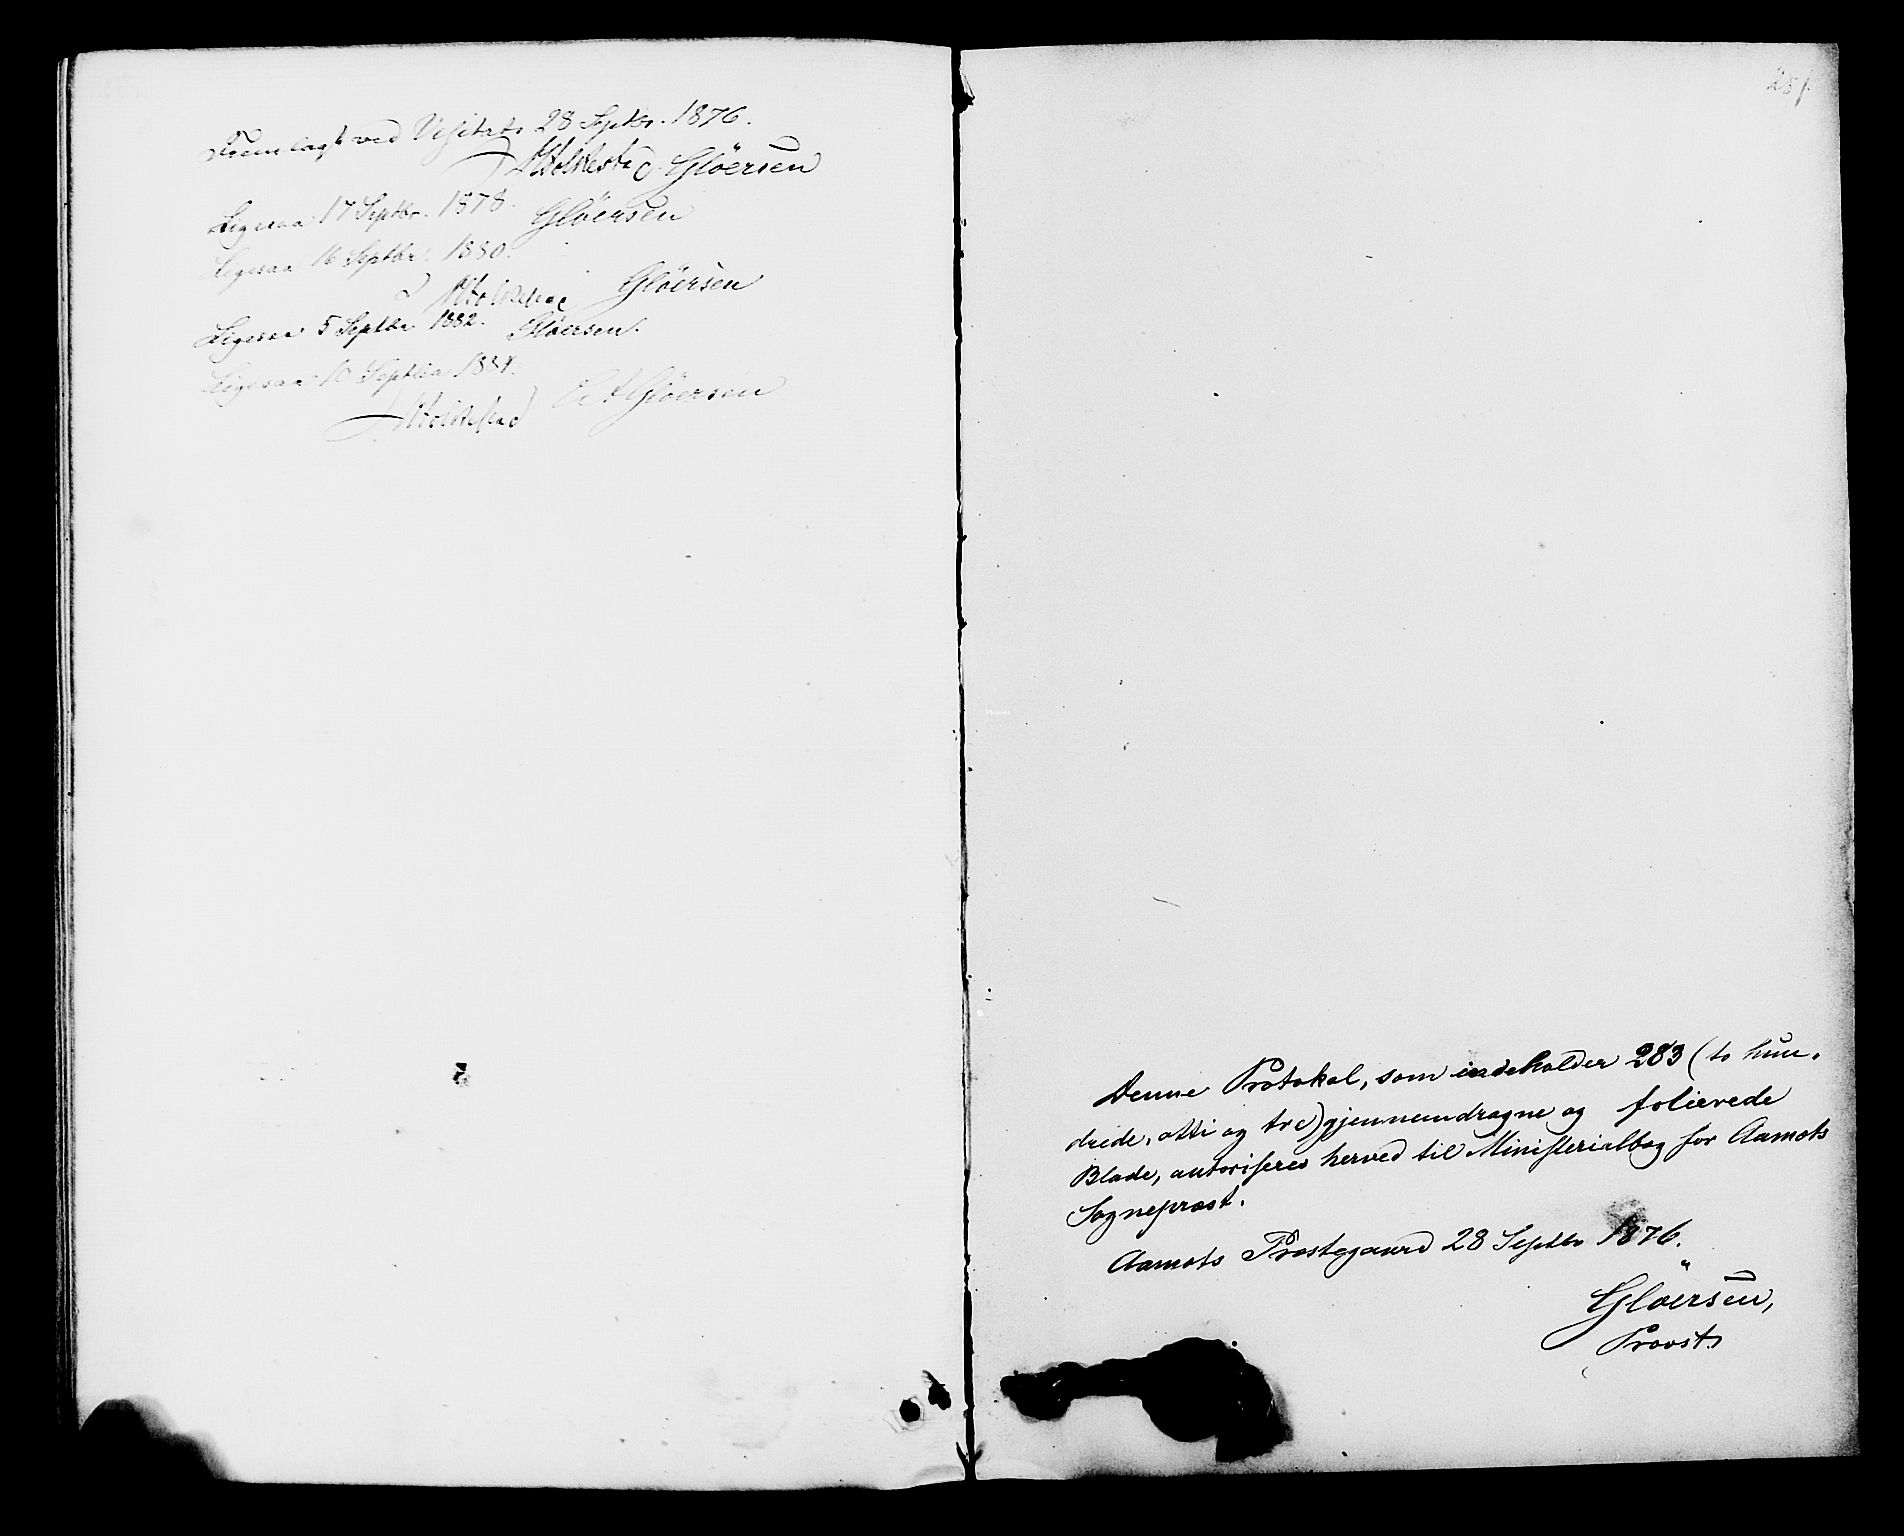 Fremlagt ved Visitats 28 Septbr. 1876.
Glöersen
Ligesaa 17 Septbr. 1878. Glöersen
Ligesaa 16 Septbr. 1880.
Glöersen
Ligesaa 5 Septbr. 1882. Glöersen.
Ligesaa 10 Septbr 1884.
Glöersen
Denne Protokol, som indeholder 283 (to hun-
drede, otti og tre) gjennemdragne og folierede
Blade, autoriseres herved til Ministerialbog for Aamots
Sognepræst.
Aamots Præstegaard 28 Septbr 1876.
Glöersen,
Provst